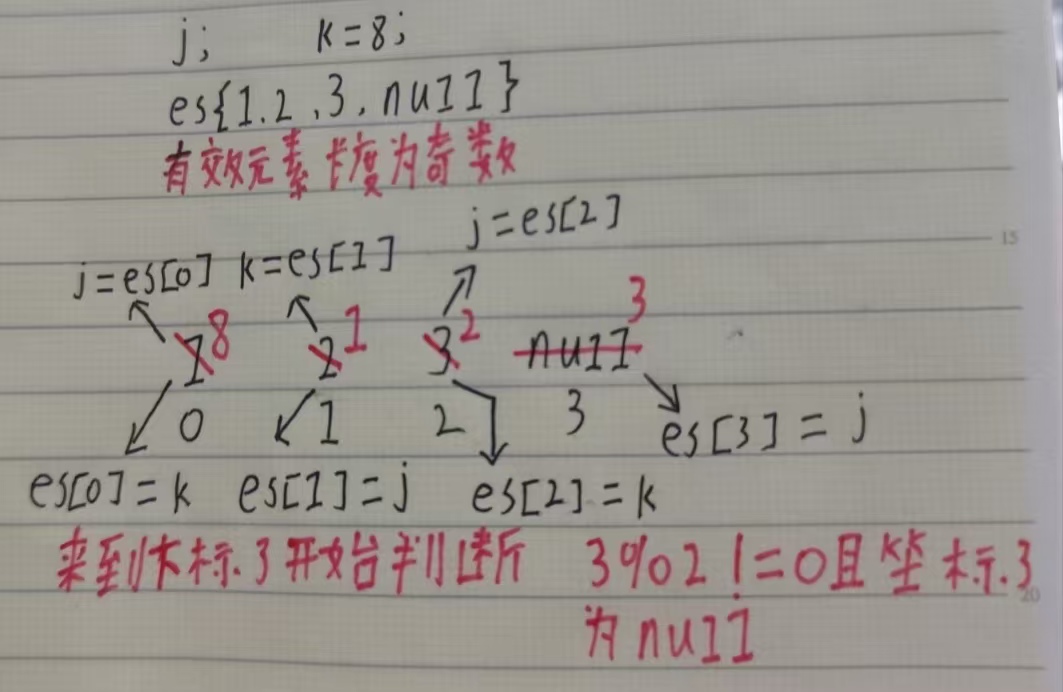 j; k=8;
es{1.2,3,null}
有效元素长度为奇数
j=es[2]
j=es[0] k=es[1]
3
1 8 2 1 3 2 null
0 1 2 3
es[3]=j
es[0]=k es[1]=j es[2]=k
来到坐标.3开始判断 3%2!=0且坐标.3
为null
15
20